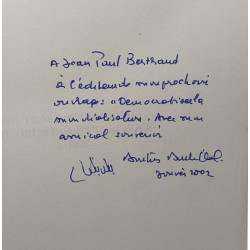 A Jean Paul Bertrand
à l'éditeur de mon prochain
ouvrage: "Démocratiser la
mondialisation". Avec mon
amical souvenir
Boutros Boutros Ghali
Janvier 2002